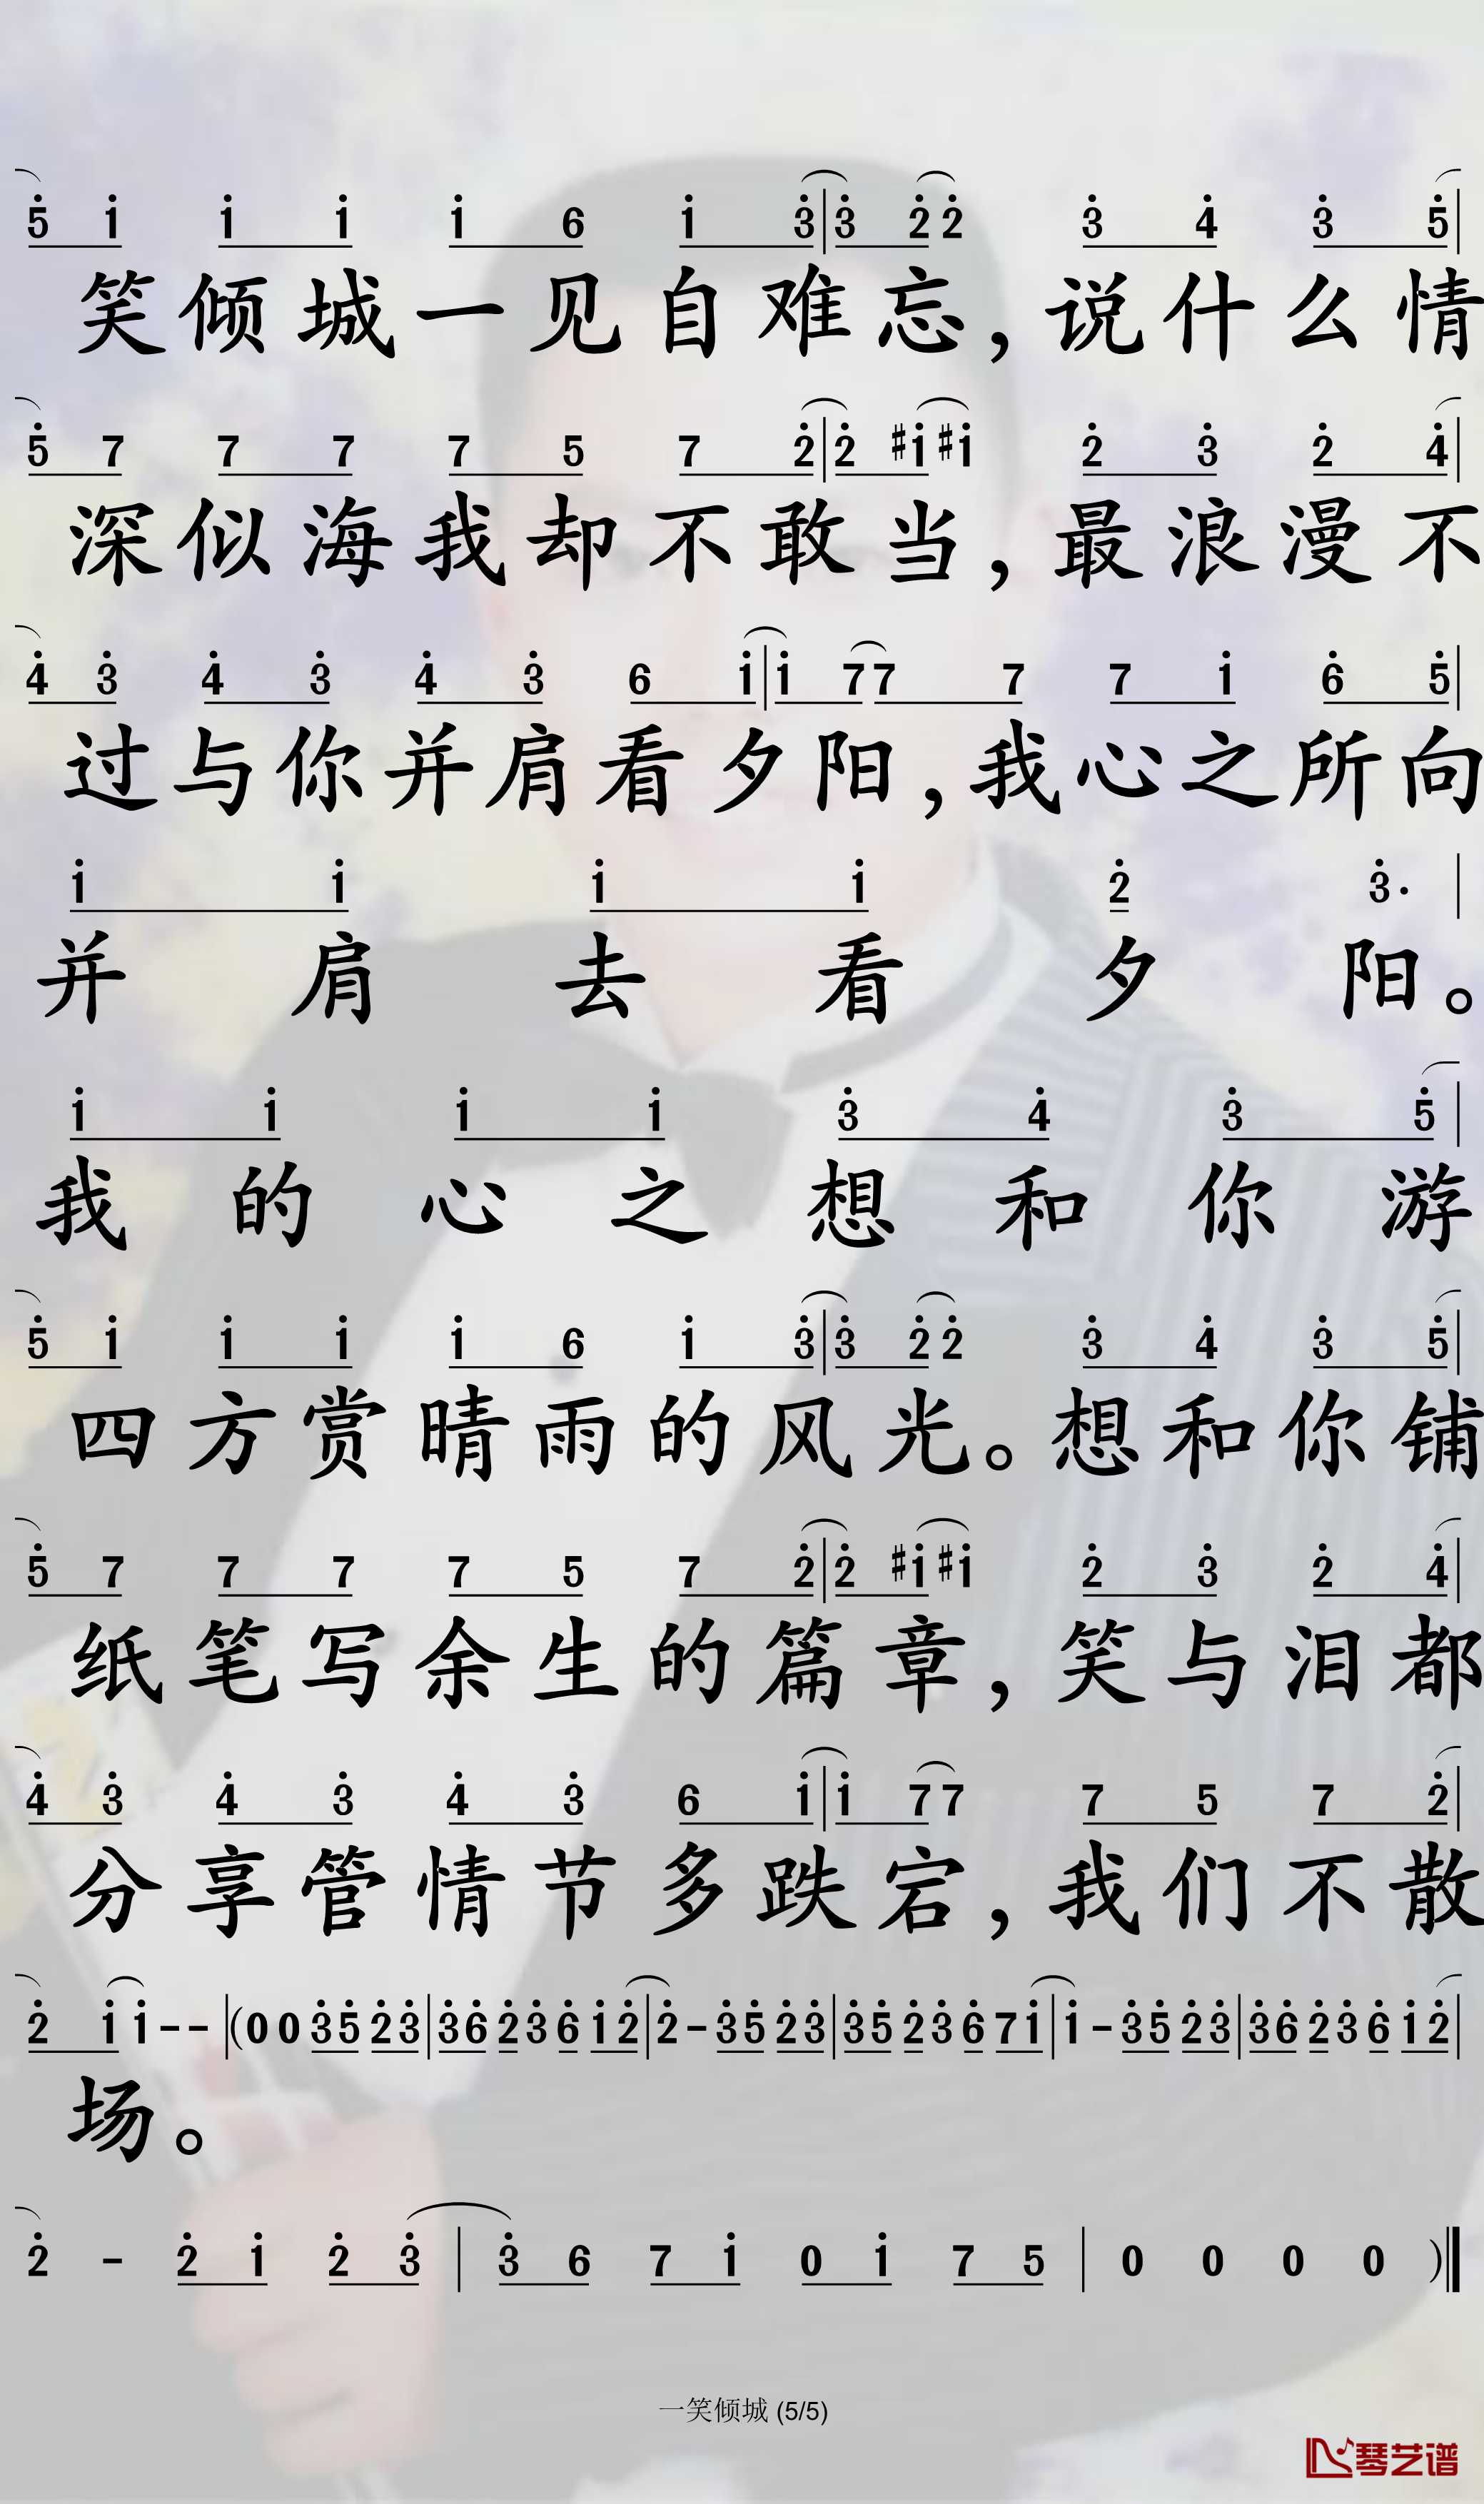 5 1 1 1 1 6 1 3 | 3 2 2 3 4 3 5 |
笑倾城一见自难忘，说什么情
5 7 7 7 7 5 7 2 | 2 #1 #1 2 3 2 4 |
深似海我却不敢当，最浪漫不
4 3 4 3 4 3 6 1 | 1 7 7 7 7 1 6 5 |
过与你并肩看夕阳，我心之所向
1 1 1 1 2 3· |
并肩去看夕阳。
1 1 1 1 3 4 3 5 |
我的心之想和你游
5 1 1 1 1 6 1 3 | 3 2 2 3 4 3 5 |
四方赏晴雨的风光。想和你铺
5 7 7 7 7 5 7 2 | 2 #1 #1 2 3 2 4 |
纸笔写余生的篇章，笑与泪都
4 3 4 3 4 3 6 1 | 1 7 7 7 5 7 2 |
分享管情节多跌宕，我们不散
2 1 1 - - | (0 0 3 5 2 3 | 3 6 2 3 6 1 2 | 2 - 3 5 2 3 | 3 5 2 3 6 7 1 | 1 - 3 5 2 3 | 3 6 2 3 6 1 2 |
场。
2 - 2 1 2 3 | 3 6 7 1 0 1 7 5 | 0 0 0 0 )
一笑倾城 (5/5)
琴艺谱